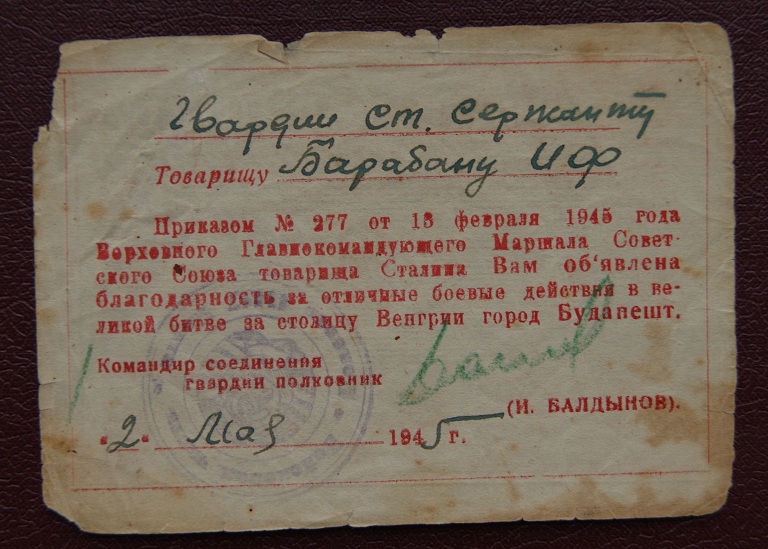 Гвардии ст. сержанту
Товарищу Барабану И Ф
Приказом № 277 от 13 февраля 1945 года
Верховного Главнокомандующего Маршала Совет-
ского Союза товарища Сталина Вам об'явлена
благодарность за отличные боевые действия в ве-
ликой битве за столицу Венгрии город Будапешт.
Командир соединения
гвардии полковник
(И. БАЛДЫНОВ).
"2" Мая 1945 г.